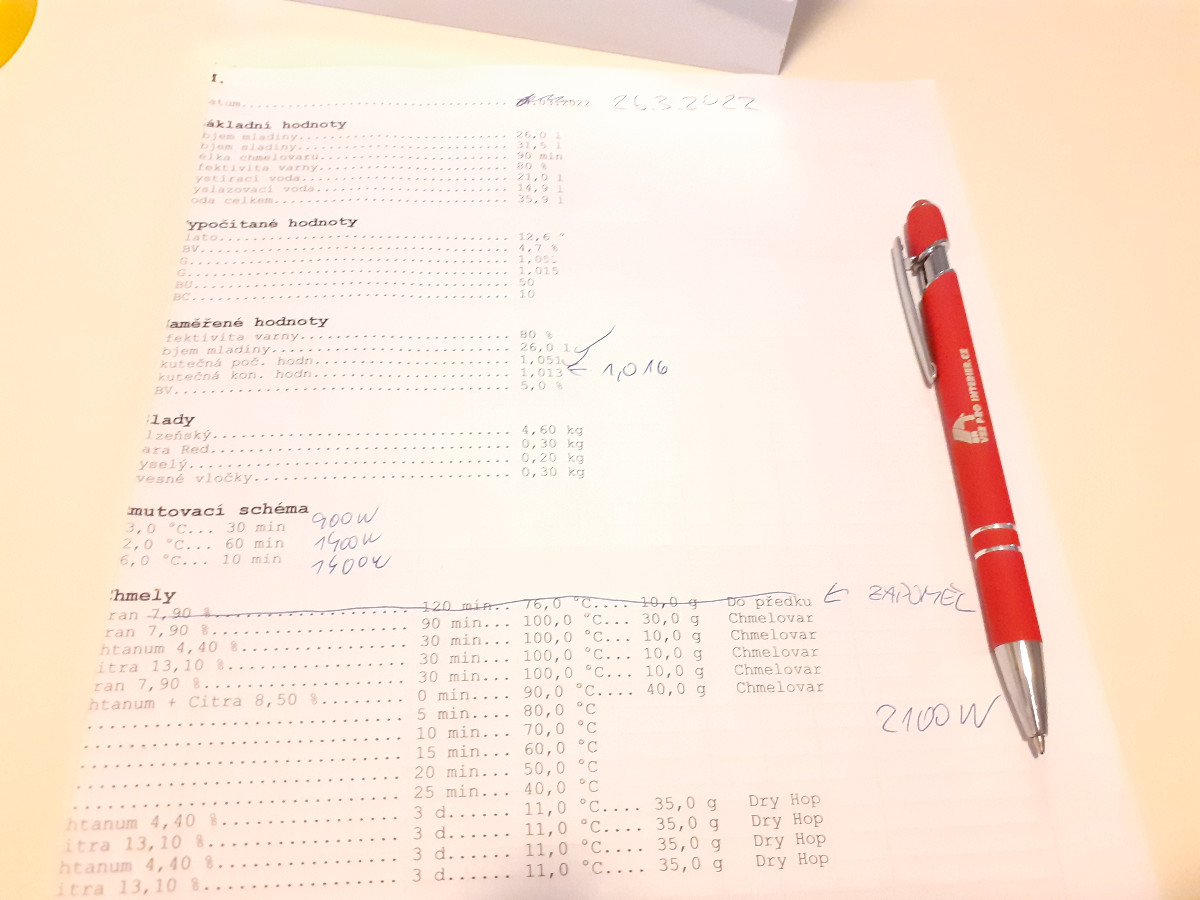 atum................................. .03.2022 26.3.2022
ákladní hodnoty
bjem mladiny................................. 26,0 l
bjem sladiny................................. 31,5 l
élka chmelovaru................................. 90 min
fektivita varny................................. 80 %
ystírací voda................................. 21,0 l
yslazovací voda................................. 14,9 l
oda celkem................................. 35,9 l
ypočítané hodnoty
lato................................. 12,6 °
BV................................. 4,7 %
G................................. 1,051
G................................. 1,015
BU................................. 50
BC................................. 10
aměřené hodnoty
fektivita varny................................. 80 %
bjem mladiny................................. 26,0 l
kutečná poč. hodn................................. 1,051
kutečná kon. hodn................................. 1,013 ← 1,016
BV................................. 5,0 %
lady
lzeňský................................. 4,60 kg
ara Red................................. 0,30 kg
yselý................................. 0,20 kg
vesné vločky................................. 0,30 kg
mutovací schéma
3,0 °C... 30 min 900W
2,0 °C... 60 min 1400W
6,0 °C... 10 min 1400W
Chmely
ran 7,90 %.................... 120 min.. 76,0 °C.... 10,0 g Do předku ← ZAPOMĚL
ran 7,90 %.................... 90 min... 100,0 °C... 30,0 g Chmelovar
htanum 4,40 %.................... 30 min... 100,0 °C... 10,0 g Chmelovar
itra 13,10 %.................... 30 min... 100,0 °C... 10,0 g Chmelovar
ran 7,90 %.................... 30 min... 100,0 °C... 10,0 g Chmelovar
htanum + Citra 8,50 %........ 0 min.... 90,0 °C.... 40,0 g Chmelovar
.................... 5 min.... 80,0 °C
.................... 10 min... 70,0 °C
.................... 15 min... 60,0 °C
.................... 20 min... 50,0 °C
.................... 25 min... 40,0 °C
2100W
htanum 4,40 %.................... 3 d...... 11,0 °C.... 35,0 g Dry Hop
itra 13,10 %.................... 3 d...... 11,0 °C.... 35,0 g Dry Hop
htanum 4,40 %.................... 3 d...... 11,0 °C.... 35,0 g Dry Hop
itra 13,10 %.................... 3 d...... 11,0 °C.... 35,0 g Dry Hop
VŠE PRO INTERIER.CZ